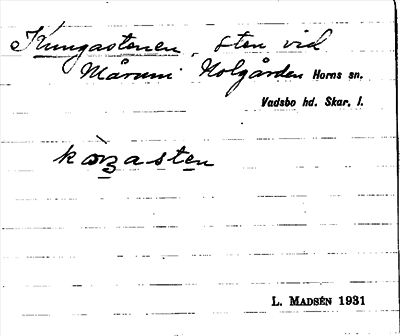 Kungastenen, sten vid
Holgården Horns sn.
Vadsbo hd. Skar. l.
L. MADSÉN 1931